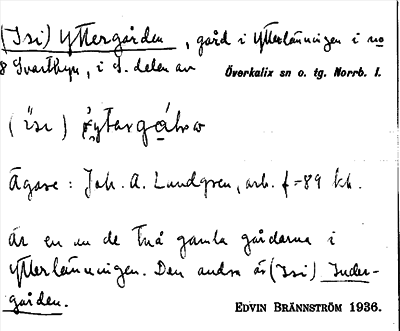 (Isi) Yttergården, gård i Ytterlänningen i no
8 Svartbyn, i S. delen av
Överkalix sn o. tg. Norrb. l.
(isi)
Ägare: Joh. A. Lundgren, arb. f -89 kb.
Är en av de två gamla gårdarna i
Ytterlänningen. Den andra är (Isi) Inder-
gården.
EDVIN BRÄNNSTRÖM 1936.